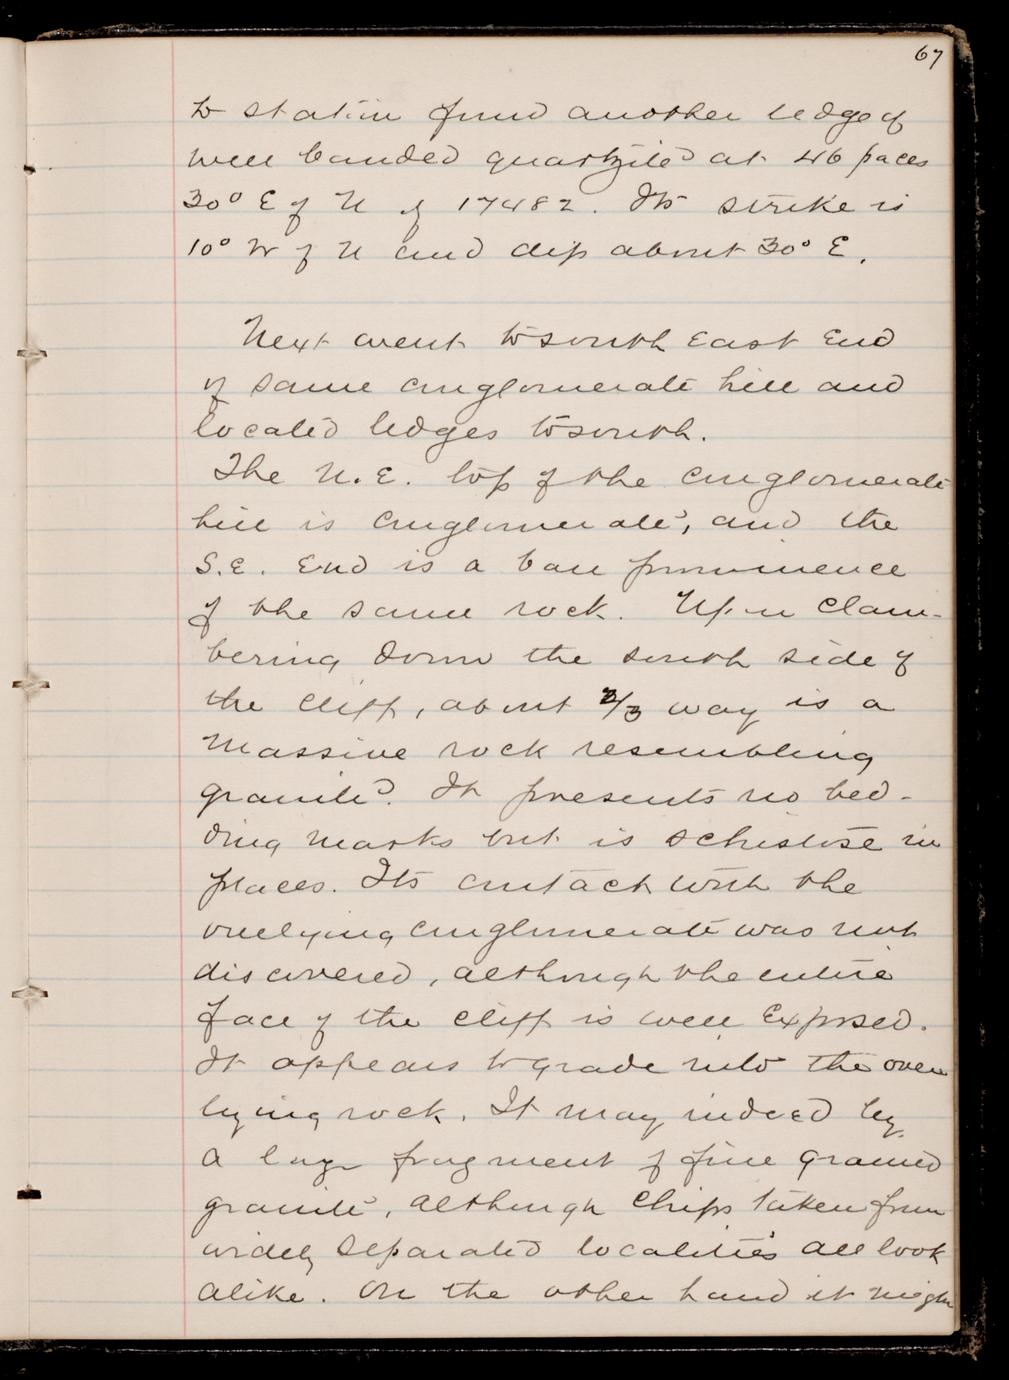 67
to station found another ledge of
well banded quartzite at 46 paces
30° E of N of 17482. Its strike is
10° W of N and dip about 30° E.
Next went to south East End
of same conglomerate hill and
located ledges to south.
The N.E. top of the conglomerate
hill is conglomerate, and the
S.E. End is a bare prominence
of the same rock. Upon clam-
bering down the south side of
the cliff, about 2/3 way is a
massive rock resembling
granite. It presents no bed-
ding marks but is schistose in
places. Its contact with the
overlying conglomerate was not
discovered, although the entire
face of the cliff is well Exposed.
It appears to grade into the over
lying rock. It may indeed by
a large fragment of fine grained
granite, although chips taken from
widely separated localities all look
alike. On the other hand it might